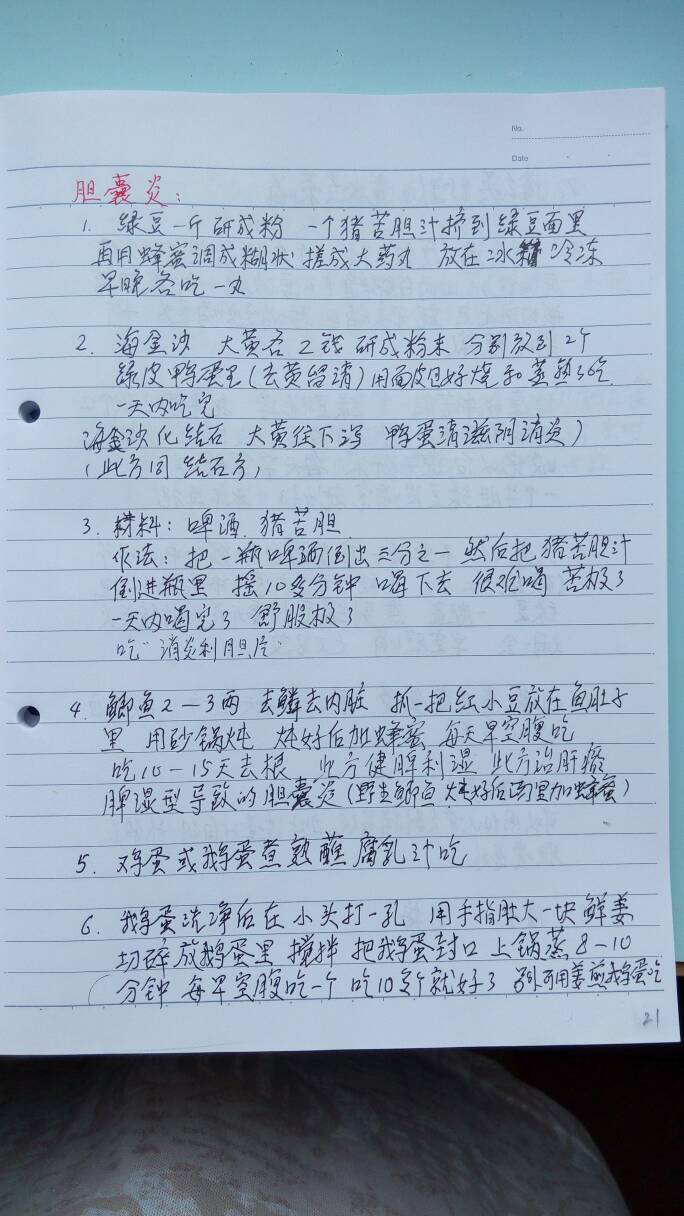 No.
Date
胆囊炎:
1. 绿豆一斤研成粉 一个猪苦胆汁挤到绿豆面里
再用蜂蜜调成糊状 搓成大药丸 放在冰箱冷冻
早晚各吃一丸
2. 海金沙 大黄各2钱 研成粉末 分别放到2个
绿皮鸭蛋里(去黄留清)用面皮包好烧和蒸熟了吃
一天内吃完
海金沙化结石 大黄往下泻 鸭蛋清滋阴消炎)
(此方同结石方)
3. 材料: 啤酒 猪苦胆
作法: 把一瓶啤酒倒出三分之一 然后把猪苦胆汁
倒进瓶里 摇10多分钟 喝下去 很难喝 苦极了
一天内喝完了 舒服极了
吃"消炎利胆片
4. 鲫鱼2—3两 去鳞去内脏 抓一把红小豆放在鱼肚子
里 用砂锅炖 炖好后加蜂蜜 每天早空腹吃
吃10—15天去根 此方健脾利湿 此方治肝瘀
脾湿型导致的胆囊炎(野生鲫鱼 炖好后汤里加蜂蜜)
5. 鸡蛋或鹅蛋煮熟蘸腐乳汁吃
6. 鹅蛋洗净后在小头打一孔 用手指肚大一块鲜姜
切碎放鹅蛋里 搅拌 把鹅蛋封口 上锅蒸8—10
分钟 每早空腹吃一个 吃10多个就好了 另外可用姜煎鹅蛋吃
21